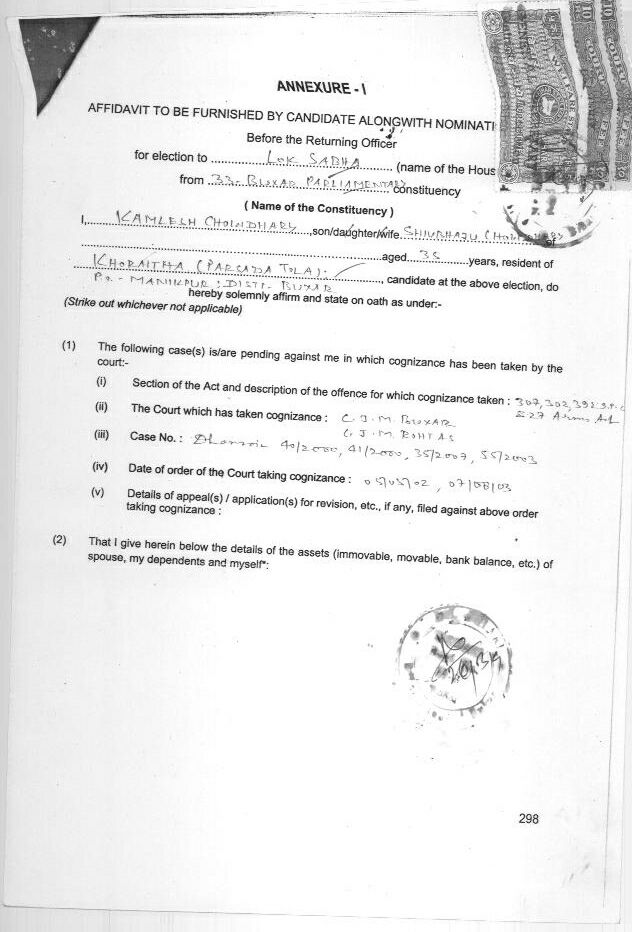 ANNEXURE - I
AFFIDAVIT TO BE FURNISHED BY CANDIDATE ALONGWITH NOMINATI
Before the Returning Officer
for election to ........ LOK SABHA ........ (name of the Hous
from .. 33- BUXAR PARLIAMENTARY constituency
( Name of the Constituency )
I,...... KAMLESH CHOWDHARY ......,son/daughter/wife. SHIVBHAJU of
........aged... 35 ......years, resident of
KHORAITHA (PARSADA TOLA). ........, candidate at the above election, do
P.O- MANIKPUR : DISTT- BUXAR
hereby solemnly affirm and state on oath as under:-
(Strike out whichever not applicable)
(1) The following case(s) is/are pending against me in which cognizance has been taken by the
court:-
(i) Section of the Act and description of the offence for which cognizance taken : 307, 302, 392 I.P.C
& 27 Arms Act
(ii) The Court which has taken cognizance : C. J. M. BUXAR
C. J. M. ROHTAS
(iii) Case No. : 40/2000, 41/2000, 35/2007, 55/2003
(iv) Date of order of the Court taking cognizance : 05/05/02 , 07/08/03
(v) Details of appeal(s) / application(s) for revision, etc., if any, filed against above order
taking cognizance :
(2) That I give herein below the details of the assets (immovable, movable, bank balance, etc.) of
spouse, my dependents and myself*:
298